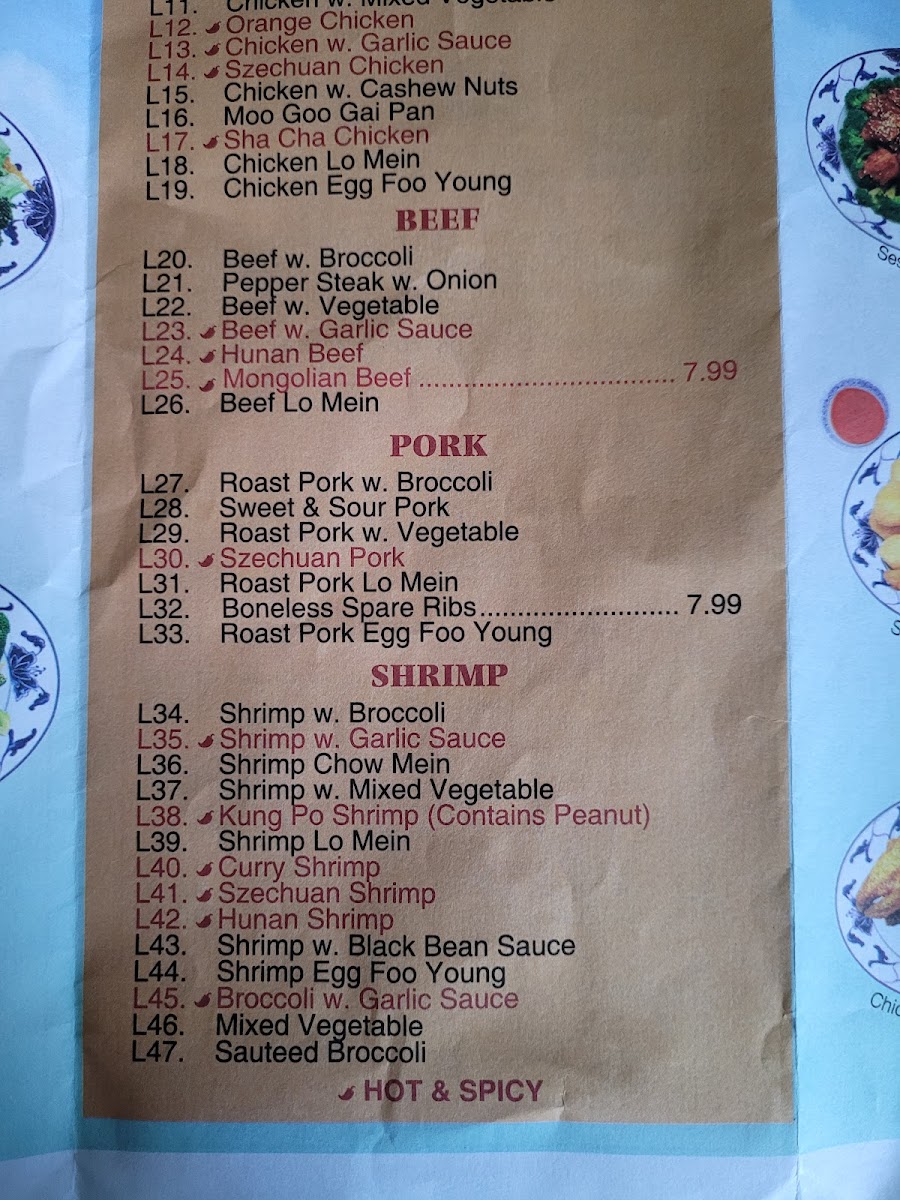 L11. Chicken w. Mixed Vegetable
L12. Orange Chicken
L13. Chicken w. Garlic Sauce
L14. Szechuan Chicken
L15. Chicken w. Cashew Nuts
L16. Moo Goo Gai Pan
L17. Sha Cha Chicken
L18. Chicken Lo Mein
L19. Chicken Egg Foo Young
BEEF
L20. Beef w. Broccoli
L21. Pepper Steak w. Onion
L22. Beef w. Vegetable
L23. Beef w. Garlic Sauce
L24. Hunan Beef
L25. Mongolian Beef .................................. 7.99
L26. Beef Lo Mein
PORK
L27. Roast Pork w. Broccoli
L28. Sweet & Sour Pork
L29. Roast Pork w. Vegetable
L30. Szechuan Pork
L31. Roast Pork Lo Mein
L32. Boneless Spare Ribs.......................... 7.99
L33. Roast Pork Egg Foo Young
SHRIMP
L34. Shrimp w. Broccoli
L35. Shrimp w. Garlic Sauce
L36. Shrimp Chow Mein
L37. Shrimp w. Mixed Vegetable
L38. Kung Po Shrimp (Contains Peanut)
L39. Shrimp Lo Mein
L40. Curry Shrimp
L41. Szechuan Shrimp
L42. Hunan Shrimp
L43. Shrimp w. Black Bean Sauce
L44. Shrimp Egg Foo Young
L45. Broccoli w. Garlic Sauce
L46. Mixed Vegetable
L47. Sauteed Broccoli
HOT & SPICY